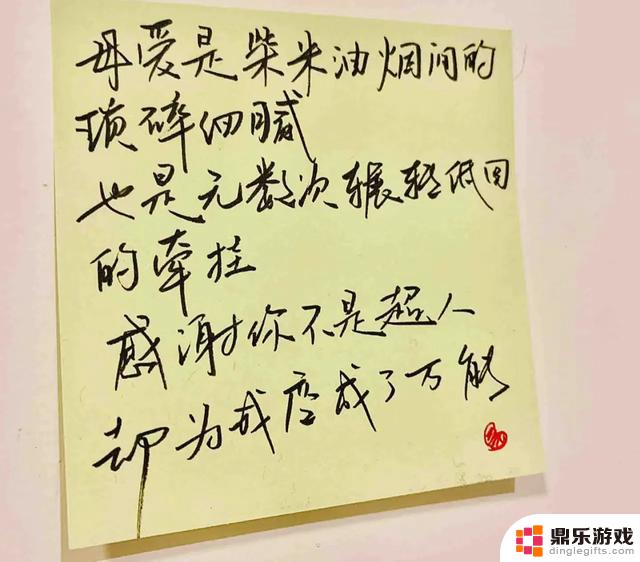 母爱是柴米油烟间的
琐碎细腻
也是无数次辗转低回
的牵挂
感谢你不是超人
却为我变成了万能
鼎乐游戏
dinglegifts.com